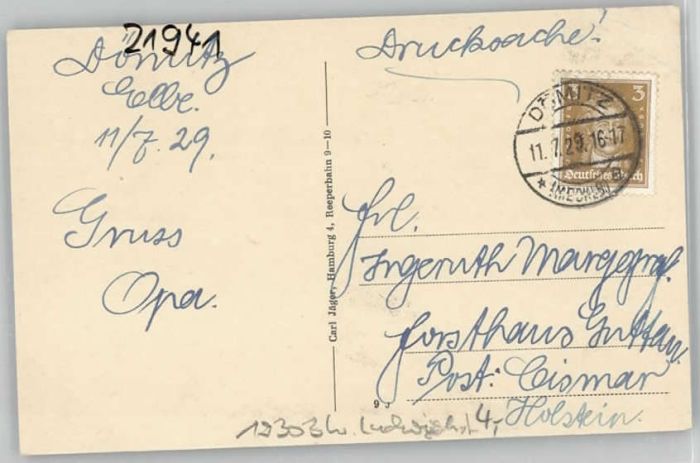 21941
Dömitz
Elbe.
11/7.29.
Gruss
Opa.
Carl Jäger, Hamburg 4, Reeperbahn 9-10
Drucksache!
3
Deutsches Reich
DÖMITZ
11.7.29.16-17
* (MECKLB)
Frl.
Ingeruth Marggraf.
Forsthaus Guttau
Post: Cismar
Holstein.
9 J
19303 4,-